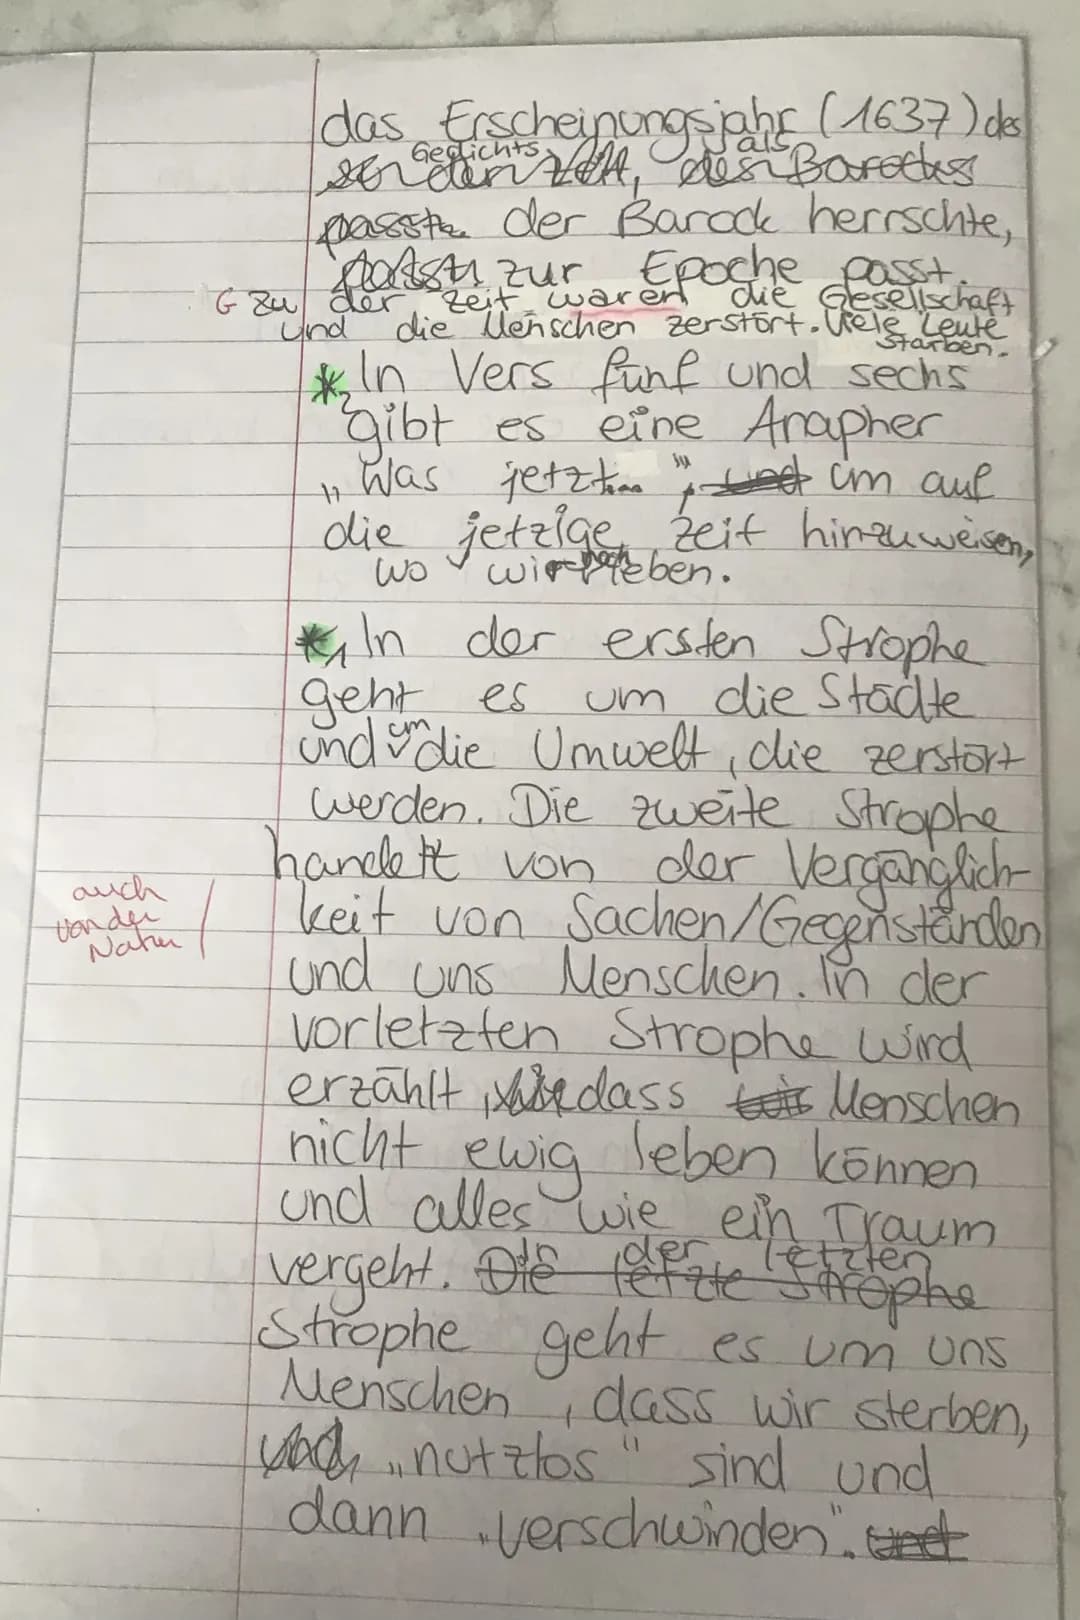 das Erscheinungsjahr (1637) des
Gedichts, als
des Barocks
passt der Barock herrschte,
zur Epoche passt.
G zu der Zeit waren die Gesellschaft
und die Menschen zerstört. Viele Leute
starben.
*2 In Vers fünf und sechs
gibt es eine Anapher
„Was jetzt..." , und um auf
die jetzige Zeit hinzuweisen,
wo wir noch leben.
*1 In der ersten Strophe
geht es um die Städte
und um die Umwelt, die zerstört
werden. Die zweite Strophe
handelt von der Vergänglich-
auch
von der
Natur
keit von Sachen/Gegenständen
und uns Menschen. In der
vorletzten Strophe wird
erzählt, dass wir Menschen
nicht ewig leben können
und alles wie ein Traum
In der letzten
vergeht. Die letzte Strophe
Strophe geht es um uns
Menschen, dass wir sterben,
und „nutzlos" sind und
dann „verschwinden". und